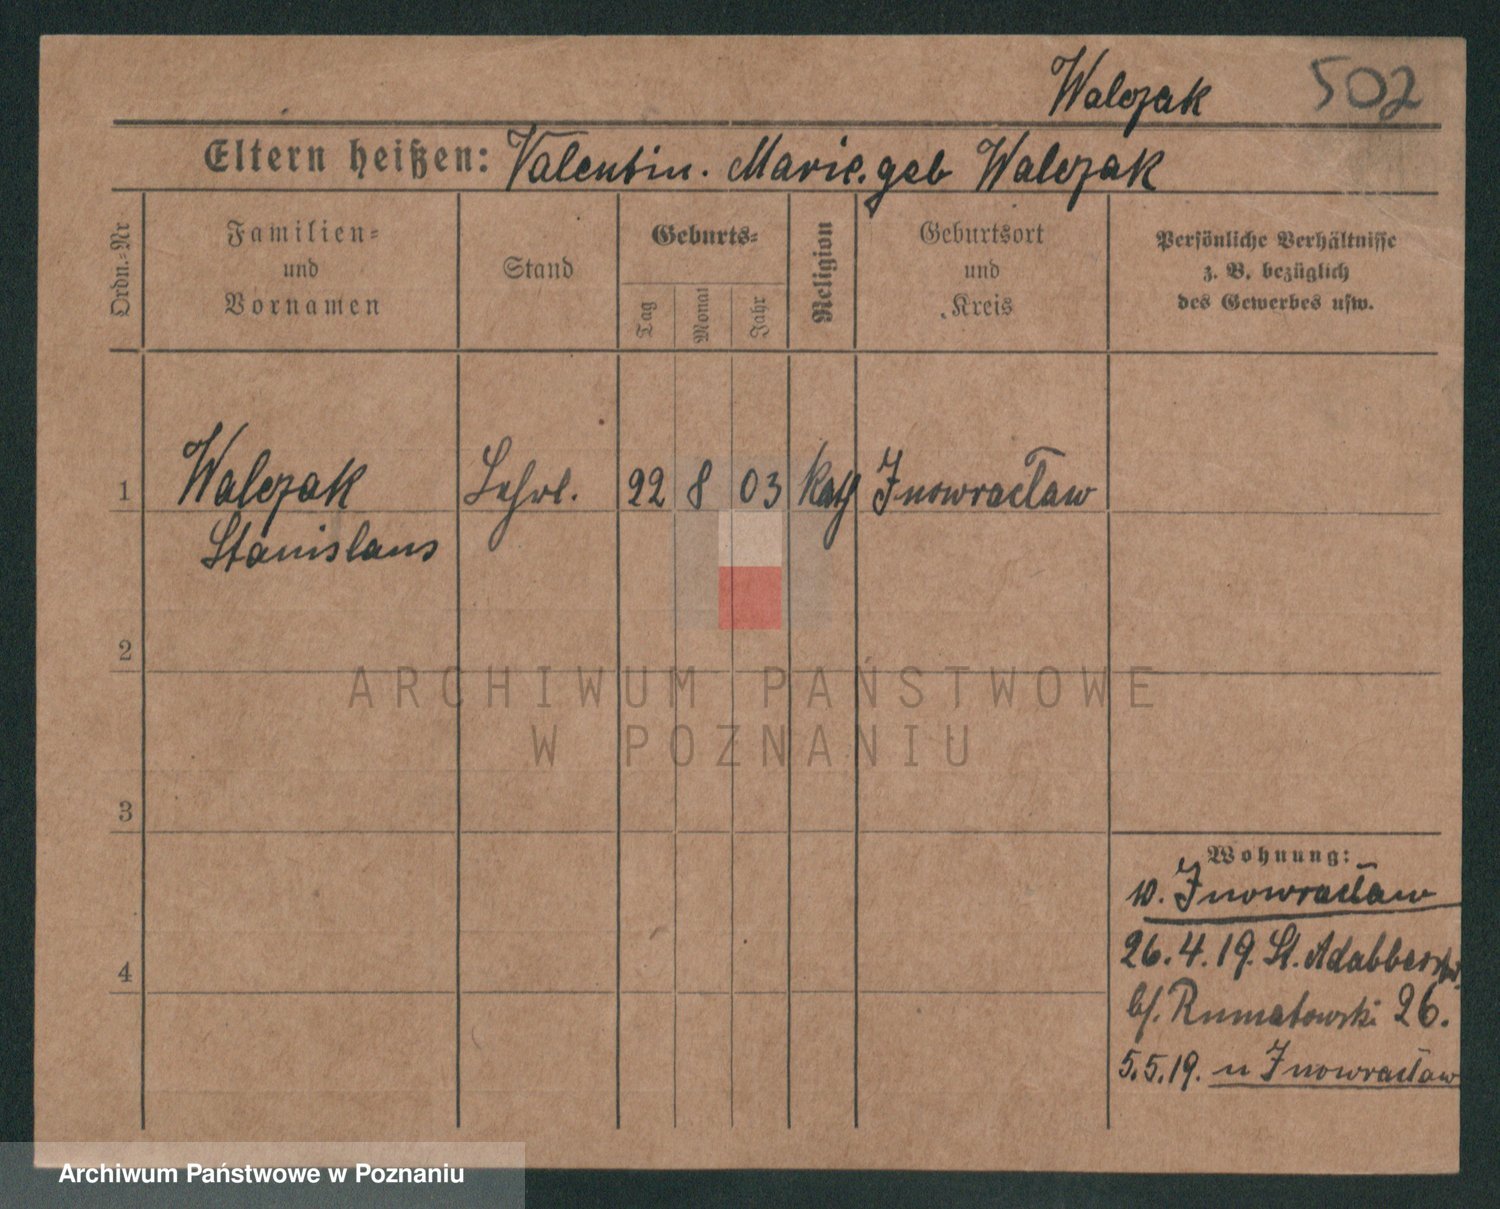 Walczak 502
Eltern heißen: Valentin. Marie. geb Walczak
Ordn.-Nr
Familien-
und
Vornamen
Stand
Geburts-
Tag
Monat
Jahr
Religion
Geburtsort
und
Kreis
Persönliche Verhältnisse
z. B. bezüglich
des Gewerbes usw.
1 Walczak Lehrl. 22 8 03 Kath Inowracław
Stanislaus
2
ARCHIWUM PAŃSTWOWE
W POZNANIU
3
Wohnung:
v. Inowracław
26.4.19. St.
4
bf. 26.
5.5.19. n Inowracław
Archiwum Państwowe w Poznaniu